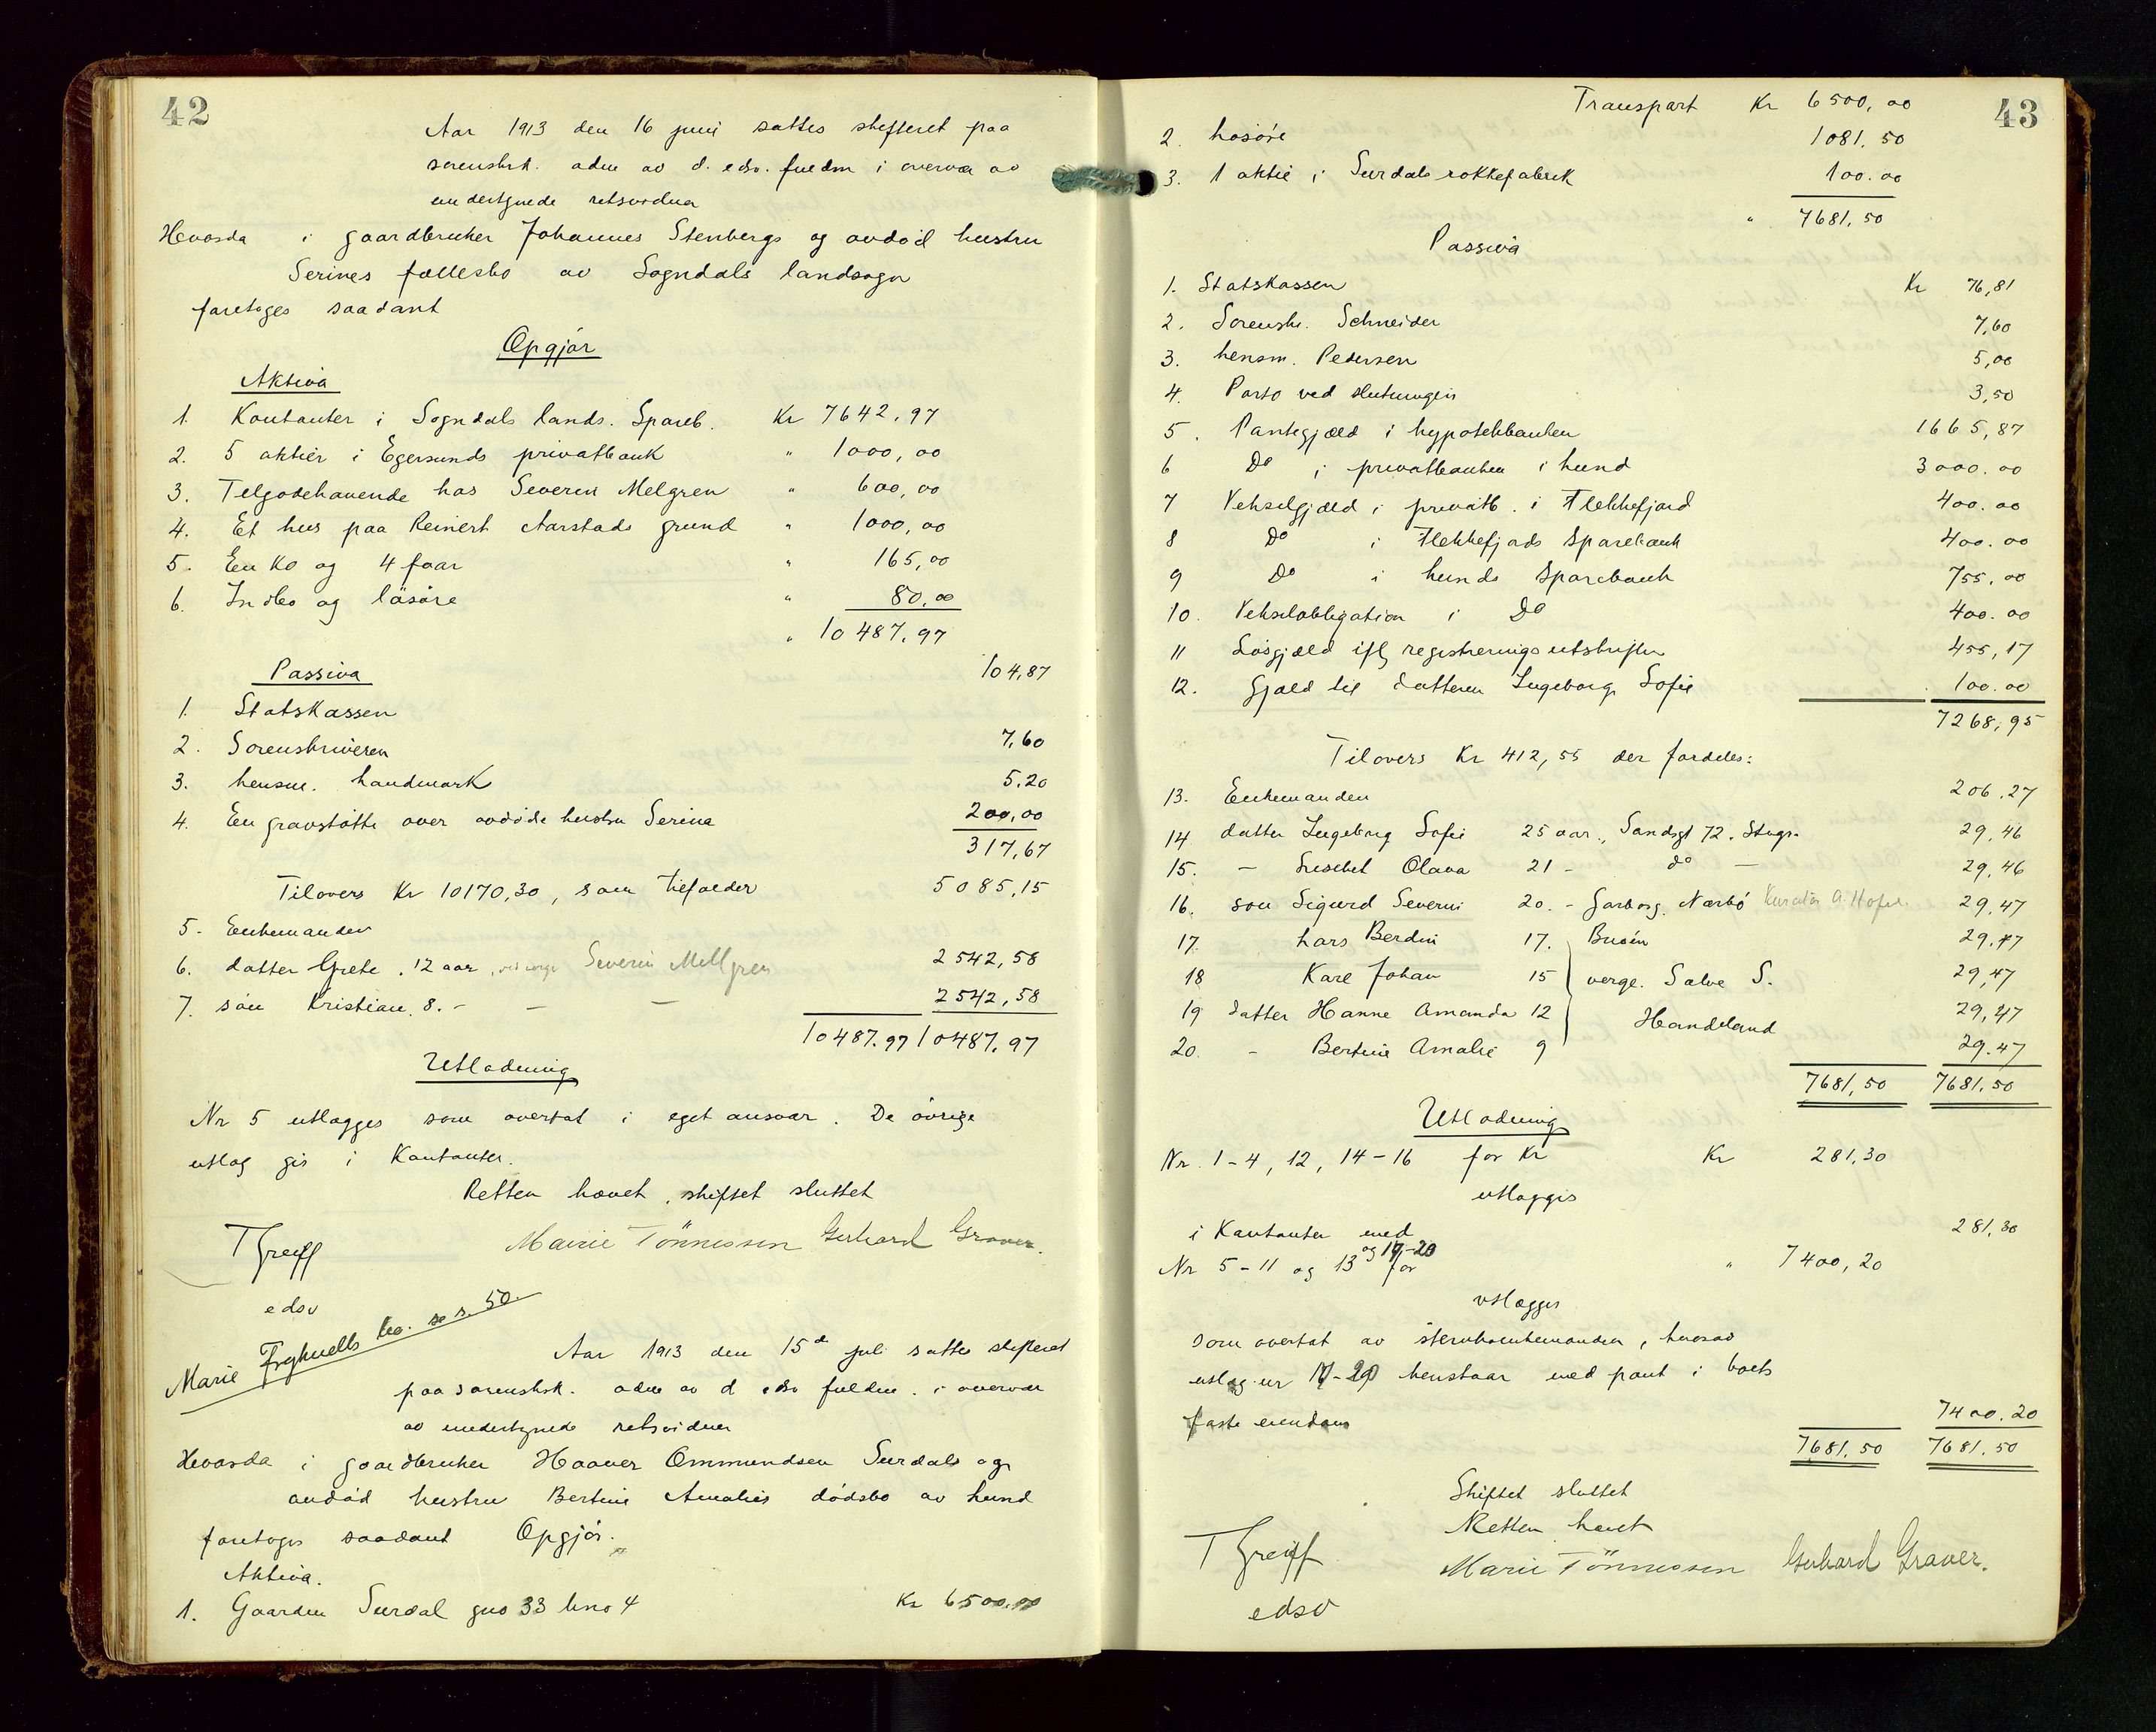 42
Aar 1913 den 16 juni sattes skifteret paa
sorenskrk. adm av d. edsv. fuldm i overvær av
undertegnede retsvidner
Hvorda i gaardbruker Johannes Stenbergs og avdød hustru
Serines fællesbo av Sogndals landsogn
foretoges saadant
Opgjør
Aktiva
1. Kontanter i Sogndals lands. Spareb. Kr 7642,97
2. 5 aktier i Egersunds privatbank " 1000,00
3. Tilgodehavende hos Severin Melgren " 600,00
4. Et hus paa Reinert Aarstads grund " 1000,00
5. En ko og 4 faar " 165,00
6. Indbo og løsøre " 80,00
" 10487,97
Passiva 104,87
1. Statskassen
2. Sorenskriveren 7,60
3. lensm. Landmark 5.20
4. En gravstøtte over avdøde hustru Serina 200,00
317,67
Tilovers Kr 10170,30, som tilfalder 5085,15
5. Enkemanden
6. datter Grete, 12 aar, ved verge Severin Mellgren 2542,58
7. søn Kristian, 8. - - - 2542,58
10487.97 10487,97
Utlodning
Nr 5 utlægges som overtat i eget ansvar. De øvrige
utlæg gis i Kontanter.
Retten hævet, skiftet sluttet
T Greiff Marie Tönnessen Gerhard Graver.
edsv
Marie bo. se s. 50.
Aar 1913 den 15d juli sattes skifteret
paa sorenskrk. adm av d edsv fuldm. i overvær
av undertegnede retsvidner
Hvorda i gaardbruker Haaver Ommundsen Surdals og
avdød hustru Bertine Amalies dødsbo av Lund
foretoges saadant Opgjør.
Aktiva.
1. Gaarden Surdal gno 33 bno 4 Kr 6500,00
43
Transport Kr 6500,00
2. Løsøre 1081,50
3. 1 aktie i Surdals rokkefabrik 100.00
" 7681,50
Passiva
1. Statskassen Kr 76,81
2. Sorenskr. Schneider 7,60
3. lensm. Pedersen 5,00
4. Porto ved slutningen 3,50
5. Pantegjæld i hypotekbanken 1665,87
6 Do i privatbanken i Lund 3000.00
7 Vekselgjæld i privatb. i Flekkefjord 400.00
8 Do i Flekkefjords Sparebank 400.00
9 Do i Lunds Sparebank 755,00
10. Vekselobligation i Do 400.00
11 Løsgjæld ifl registreringsutskriften 455,17
12. Gjæld til datteren Ingeborg Sofie 100.00
7268,95
Tilovers Kr 412,55 der fordeles:
13. Enkemanden 206.27
14 datter Ingeborg Sofie 25 aar., Sandsgt 72. Stvgr. 29,46
15. - Lisebet Olava 21 - do - 29,46
16. søn Sigurd Severin 20. - Garborg. Nærbø Kurator A. 29,47
17. Lars Berdin 17. Bruen 29,47
18 Karl Johan 15 verge. Salve S. 29,47
19 datter Hanne Amanda 12 Handeland 29,47
20. - Bertine Amalie 9 29.47
7681,50 7681.50
Utlodning
Nr. 1-4, 12, 14-16 for Kr Kr 281,30
utlægges
i Kontanter med 281,30
Nr 5-11 og 13 og 17-20 for " 7400,20
utlægges
som overtat av stervboenkemanden, hvorav
utlæg nr 17-20 henstaar med pant i boets
faste eiendom 7400.20
7681.50 7681.50
Skiftet sluttet
Retten hævet
T Greiff Marie Tönnessen Gerhard Graver.
edsv